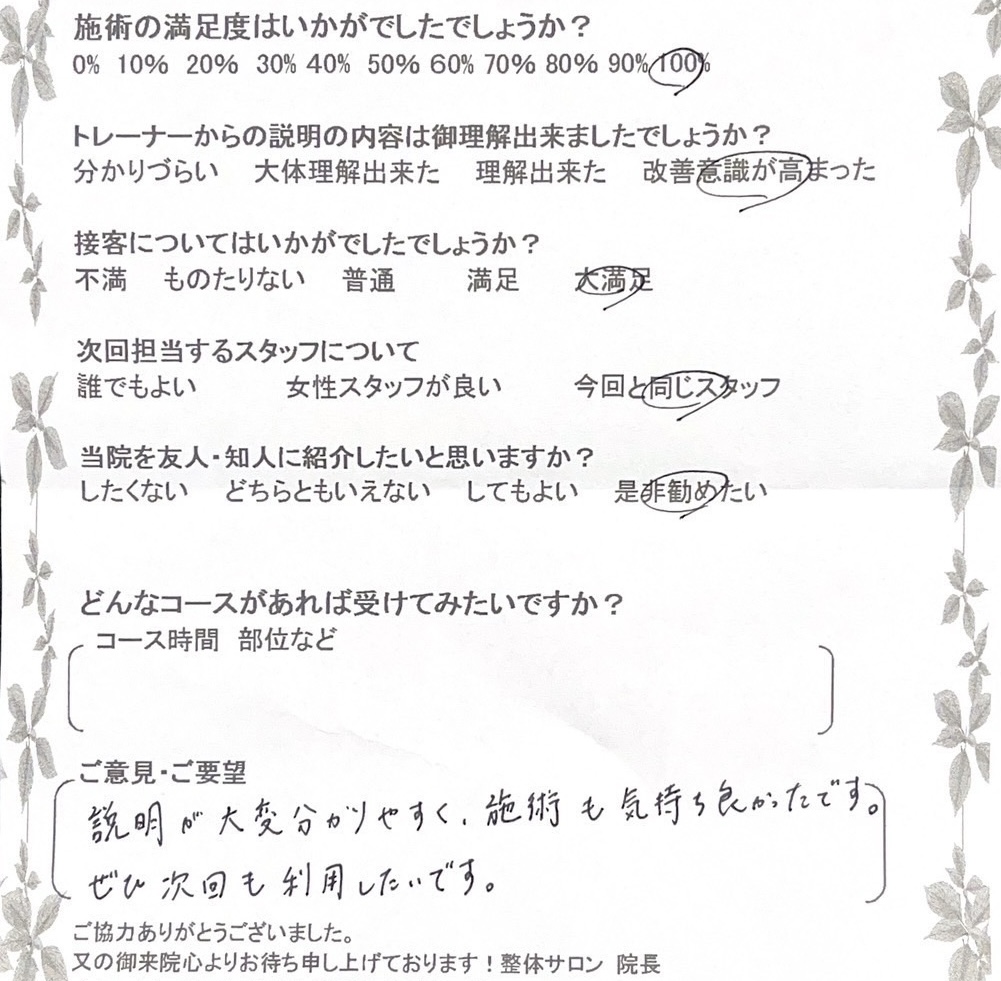 施術の満足度はいかがでしたでしょうか？
0% 10% 20% 30% 40% 50% 60% 70% 80% 90% 100%
トレーナーからの説明の内容は御理解出来ましたでしょうか？
分かりづらい 大体理解出来た 理解出来た 改善意識が高まった
接客についてはいかがでしたでしょうか？
不満 ものたりない 普通 満足 大満足
次回担当するスタッフについて
誰でもよい 女性スタッフが良い 今回と同じスタッフ
当院を友人・知人に紹介したいと思いますか？
したくない どちらともいえない してもよい 是非勧めたい
どんなコースがあれば受けてみたいですか？
コース時間 部位など
ご意見・ご要望
説明が大変分かりやすく、施術も気持ち良かったです。
ぜひ次回も利用したいです。
ご協力ありがとうございました。
又の御来院心よりお待ち申し上げております！整体サロン 院長